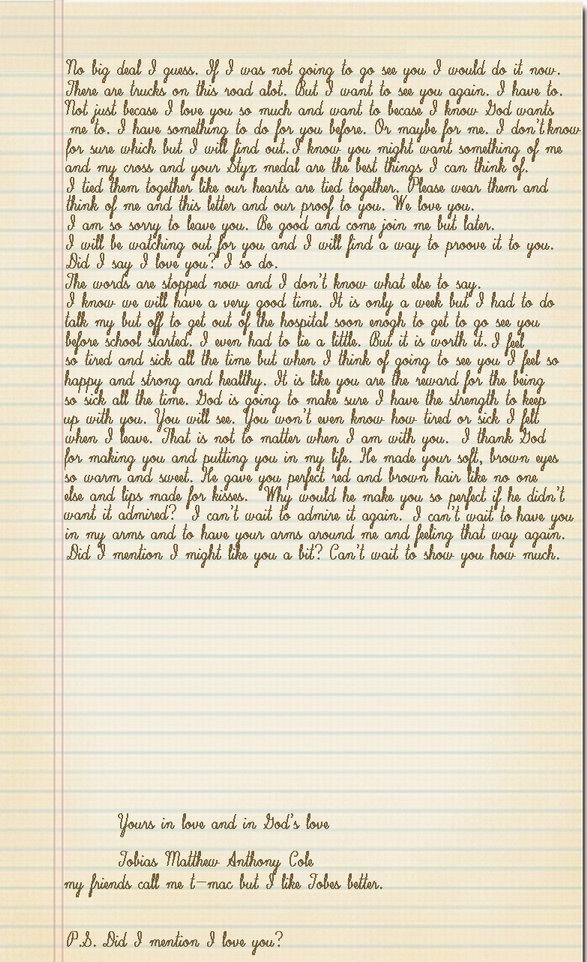 No big deal I guess. If I was not going to go see you I would do it now.
There are trucks on this road alot. But I want to see you again. I have to.
Not just becase I love you so much and want to becase I know God wants
me to. I have something to do for you before. Or maybe for me. I don't know
for sure which but I will find out. I know you might want something of me
and my cross and your Styr medal are the best things I can think of.
I tied them together like our hearts are tied together. Please wear them and
think of me and this letter and our proof to you. We love you.
I am so sorry to leave you. Be good and come join me but later.
I will be watching out for you and I will find a way to proove it to you.
Did I say I love you? I so do.
The words are stopped now and I don't know what else to say.
I know we will have a very good time. It is only a week but I had to do
talk my but off to get out of the hospital soon enogh to get to go see you
before school started. I even had to lie a little. But it is worth it. I feel
so tired and sick all the time but when I think of going to see you I feel so
happy and strong and healthy. It is like you are the reward for the being
so sick all the time. God is going to make sure I have the strength to keep
up with you. You will see. You won't even know how tired or sick I felt
when I leave. That is not to matter when I am with you. I thank God
for making you and putting you in my life. He made your soft, brown eyes
so warm and sweet. He gave you perfect red and brown hair like no one
else and lips made for kisses. Why would he make you so perfect if he didn't
want it admired? I can't wait to admire it again. I can't wait to have you
in my arms and to have your arms around me and feeling that way again.
Did I mention I might like you a bit? Can't wait to show you how much.
Yours in love and in God's love
Tobias Matthew Anthony Cole
my friends call me t-mac but I like Tobes better.
P.S. Did I mention I love you?